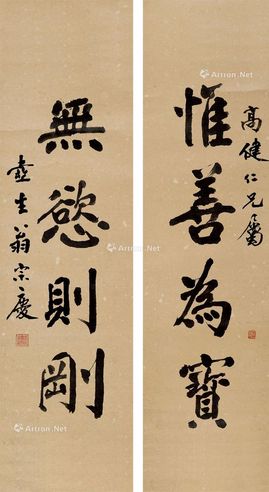 高健仁兄屬
惟善為寶
無慾則剛
壺生翁宗慶
Artron.Net
Artron.Net
Artron.Net
Artron.Net